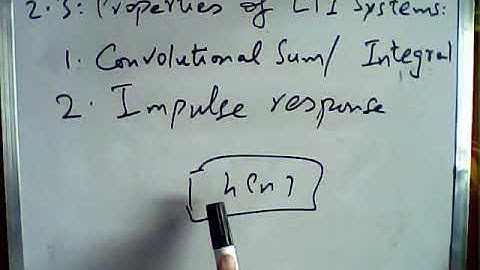 2.3: Properties of LTI Systems:
1. Convolutional Sum/ Integral
2. Impulse response
h(n)